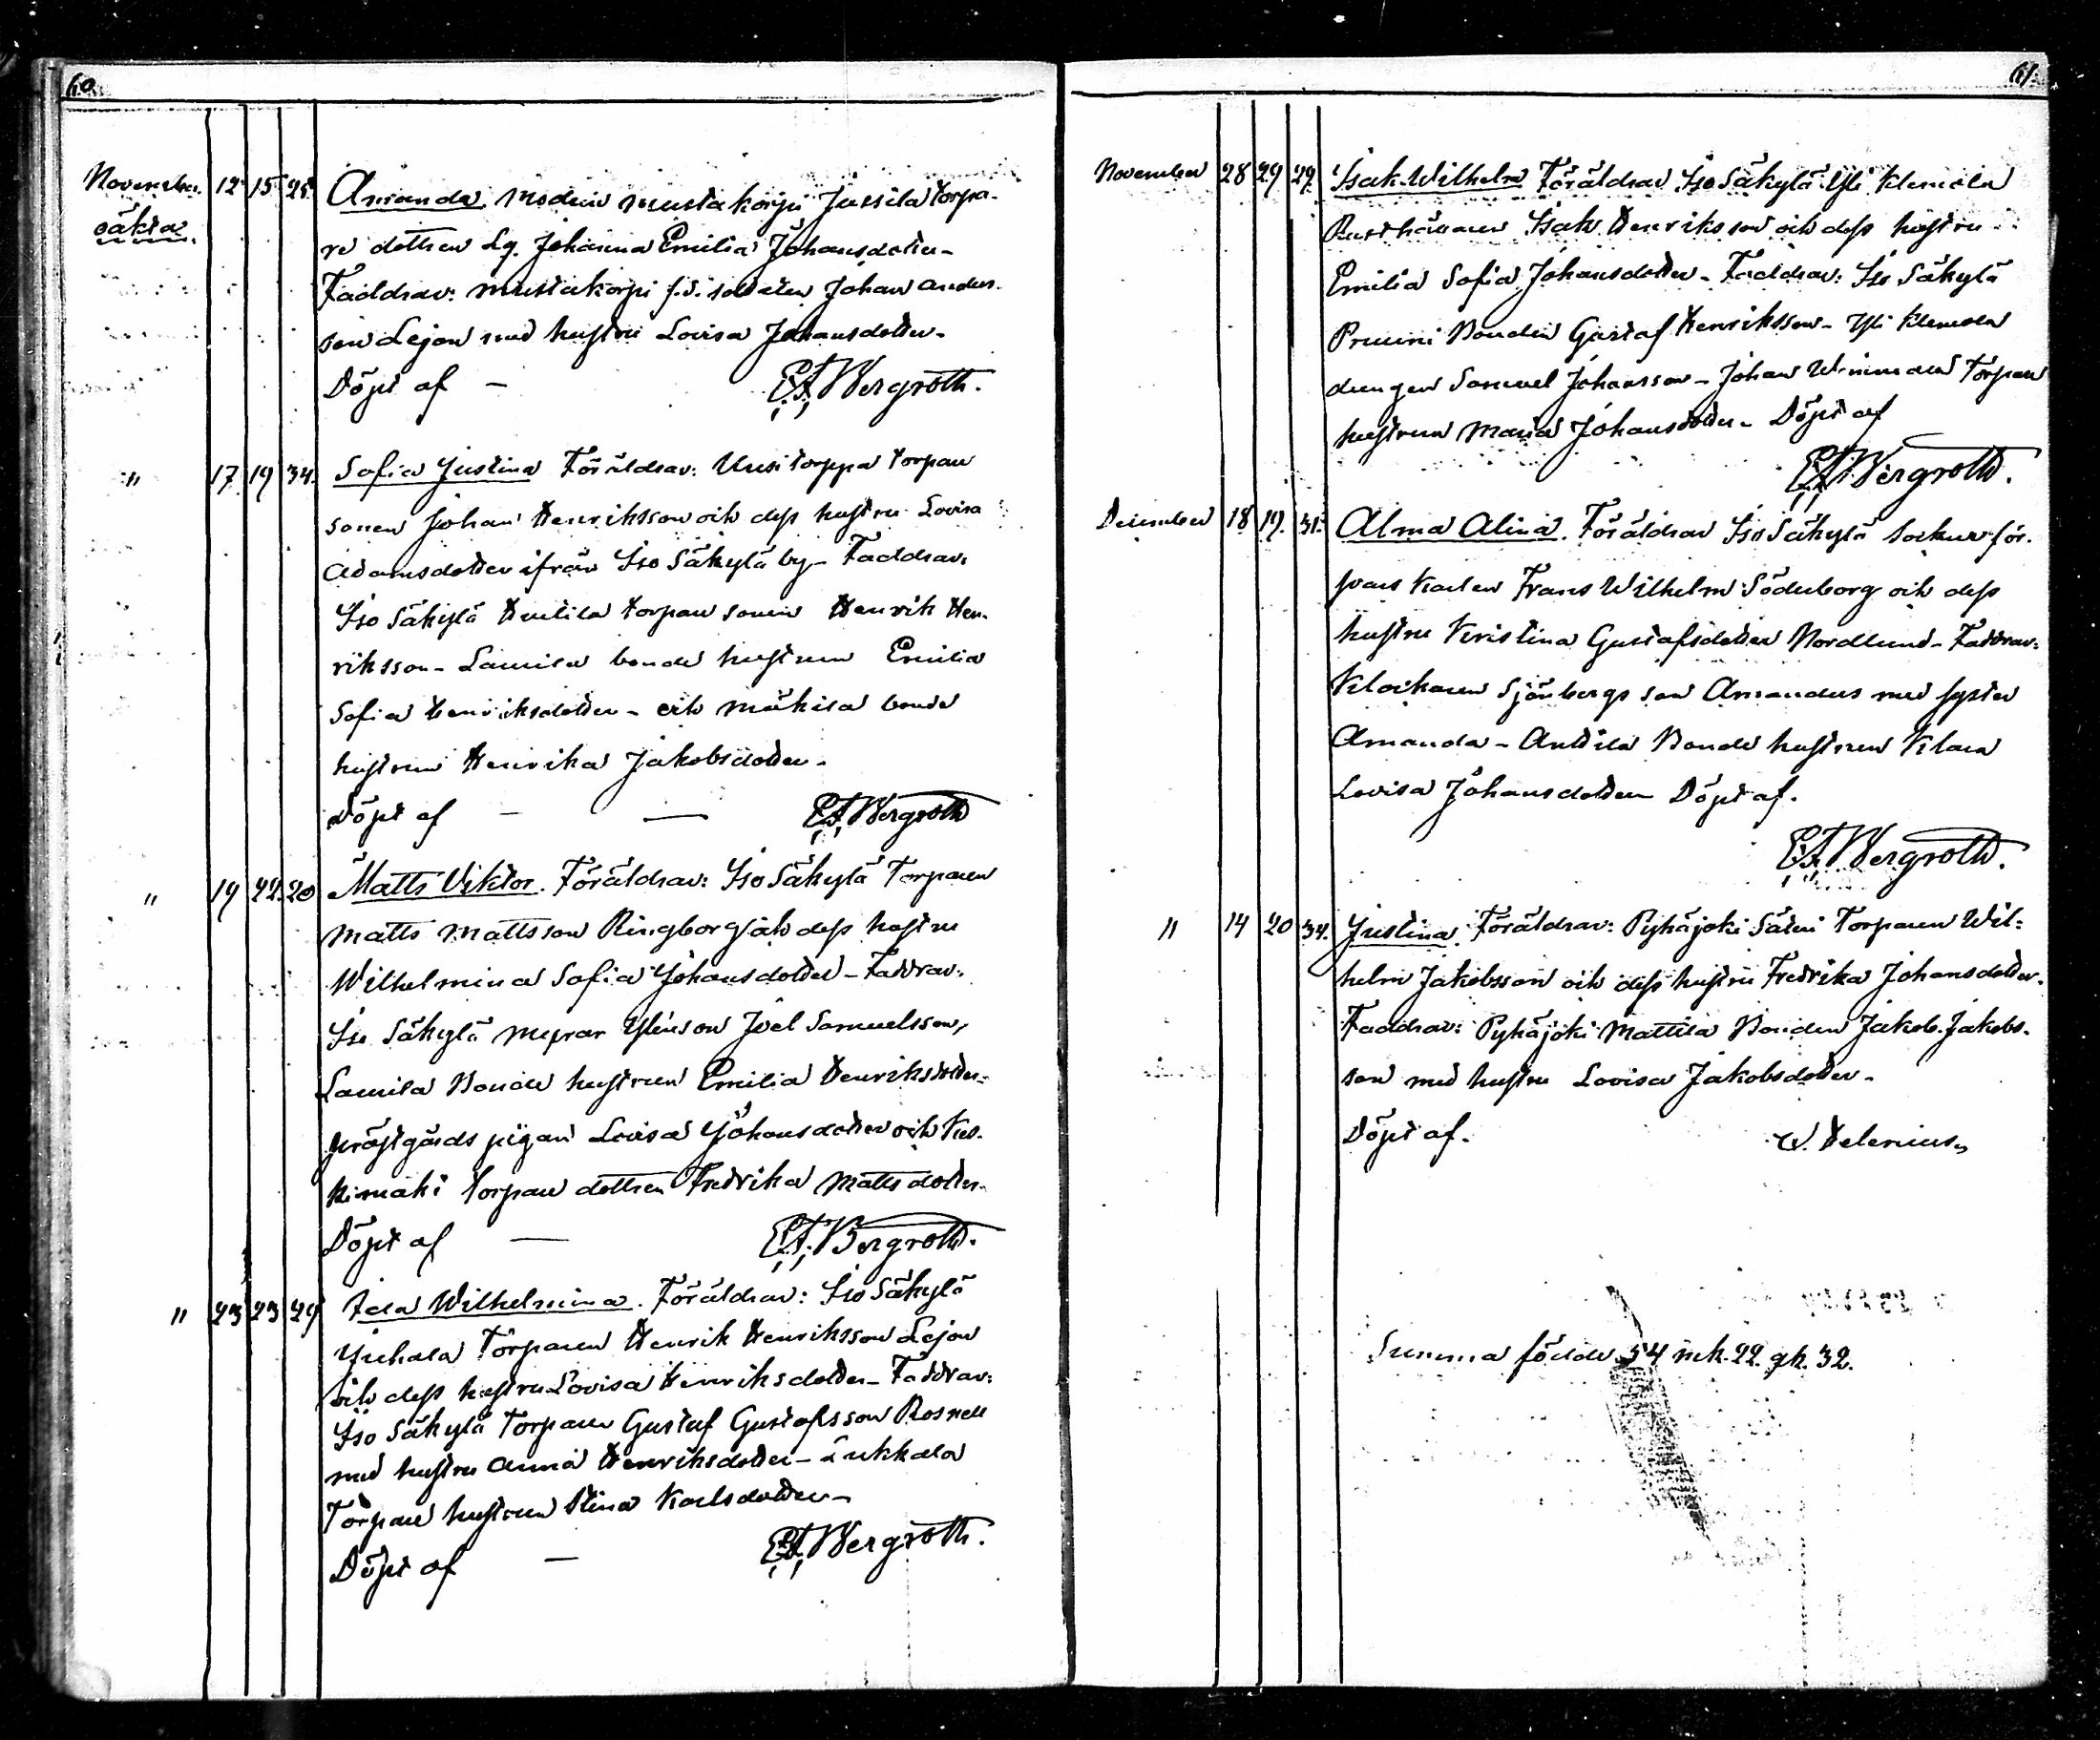 60.
November 12 15 25. Amanda. Modern Mustakorpi Jussila torpa-
oäkta re dottren Lq. Johanna Emilia Johansdotter-
Faddrar: Mustakorpi f.d. soldaten Johan Anders-
son Lejon med hustru Lovisa Johansdotter-
Döpt af — E.F. Bergroth.
" 17 19 34. Sofia Justina Föräldrar: Uusitorppa torpare
sonen Johan Henriksson och dess hustru Lovisa
Adamsdotter ifrån Iso Säkylä by- Faddrar:
Iso Säkylä torpare sonen Henrik Hen-
riksson- Laurila bonde hustrun Emilia
Sofia Henriksdotter- och Mäkilä bonde
hustrun Henrika Jakobsdotter-
Döpt af — — E.F. Bergroth
" 19 22. 20 Matts Viktor. Föräldrar: Iso Säkylä Torparen
Matts Mattsson Ringborg och dess hustru
Wilhelmina Sofia Johansdotter- Faddrar:
Iso Säkylä son Joel Samuelsson,
Laurila Bonde hustrun Emilia Henriksdotter-
prästgårds pigan Lovisa Johansdotter och Kes-
kimäki torpare dottren Fredrika Mattsdotter-
Döpt af — E.F. Bergroth.
" 23 23 29 Ida Wilhelmina. Föräldrar: Iso Säkylä
Juhala Torparen Henrik Henriksson Lejon
och dess hustru Lovisa Henriksdotter- Faddrar:
Iso Säkylä Torparen Gustaf Gustafsson Rosnell
med hustru Anna Henriksdotter-
Torpare hustrun Stina Karlsdotter-
Döpt af — E.F. Bergroth.
61.
November 28 29 29. Isak Wilhelm Föräldrar Iso Säkylä Yli Klemola
Rusthållaren Isak Henriksson och dess hustru
Emilia Sofia Johansdotter- Faddrar: Iso Säkylä
Pruuni Bonden Gustaf Henriksson- Yli Klemola
drengen Samuel Johansson- Johan Torpare
hustrun Maria Johansdotter- Döpt af
E.F. Bergroth.
December 18 19. 31. Alma Alina. Föräldrar Iso Säkylä Sockneför-
svars Karlen Frans Wilhelm Söderborg och dess
hustru Kristina Gustafsdotter Nordlund- Faddrar:
Klockaren Sjönbergs son Amandus med syster
Amanda- Anttila Bonde hustrun Klara
Lovisa Johansdotter Döpt af.
E.F. Bergroth.
" 14 20 34. Justina. Föräldrar: Pyhäjoki Säteri Torparen Wil-
helm Jakobsson och dess hustru Fredrika Johansdotter.
Faddrar: Pyhäjoki Mattila Bonden Jakob Jakobs-
son med hustru Lovisa Jakobsdotter-
Döpt af. W. Helenius
Summa födde 54 mk. 22. qk. 32.